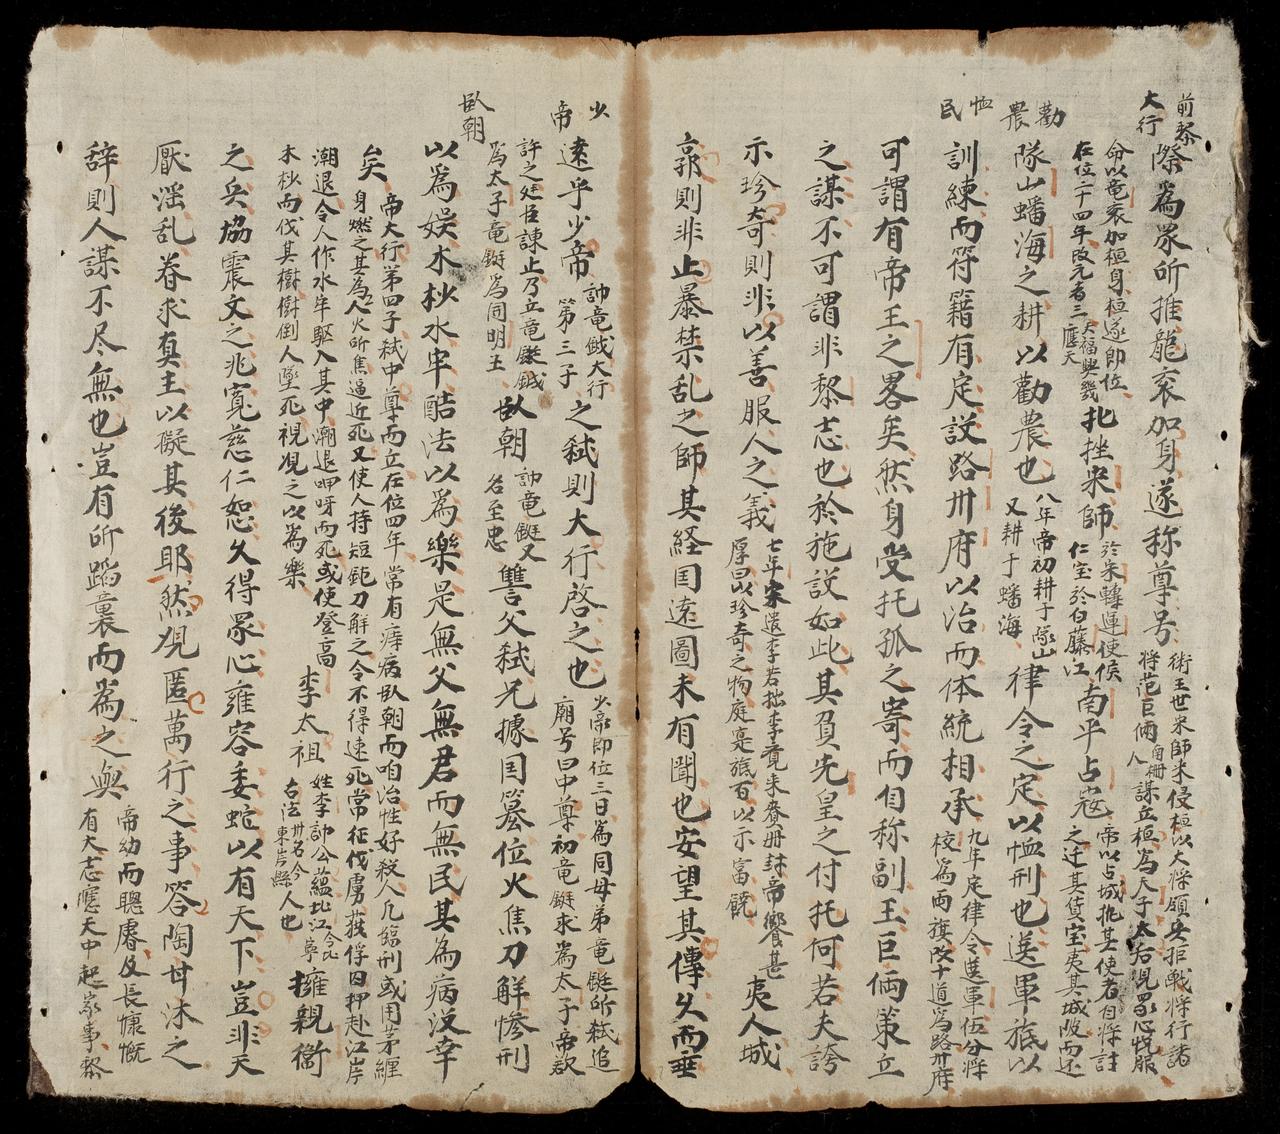 前黎
大行
際爲眾所推龍衮加身遂称尊号
術王世宋師來侵桓以大將領兵拒戰將行諸
將范巨俩南柵人謀立桓為天子太后見眾心悅服
命以竜衮加桓身桓遂即位
在位二十四年改元者三天福興統應天
北挫宋師
於宋轉運使侯
仁宝於白藤江
南平占寇
帝以占城拖其使者自將討
之迁其貨宝夷其城池而还
勸農
隊山蟠海之耕以勸農也
八年帝初耕于隊山
又耕于蟠海
律令之定以恤刑也選軍旅以
恤民
訓練而符籍有定設路州府以治而体統相承
九年定律令選軍伍分將
校為両旗改十道為路州府
可謂有帝王之畧矣然身受托孤之寄而自称副王巨俩策立
之謀不可謂非黎志也於施設如此其負先皇之付托何若夫誇
示珍奇則非以善服人之義
七年宋遣李若拙李覚來眷册封帝饗甚
厚曰以珍奇之物庭寔旅百以示富饒
夷人城
郭則非止暴禁乱之師其経国遠圖未有聞也安望其傳久而垂
少帝
遠乎少帝
諱竜鉞大行
第三子
之弑則大行啓之也
少帝即位三日為同母弟竜鋌所弑追
廟号曰中尊初竜鋌求為太子帝欲
許之廷臣諫止乃立竜鉞
為太子竜鋌為同明王
臥朝
臥朝
諱竜鋌又
名至忠
讐父弑兄據国簒位火焦刀解慘刑
以為娯木杪水牢酷法以為樂是無父無君而無民其為病没幸
矣
帝大行第四子弑中尊而立在位四年常有痔病臥朝而咱治性好殺人凡臨刑或用茅纏
身燃之其為人火所焦逼近死又使人持短鈍刀解之令不得速死常征伐虜获俘囚押赴江岸
潮退令人作水牢駆入其中潮退呷呀而死或使登高
木杪而伐其樹樹倒人墜死視覌之以為樂
李太祖
姓李諱公蘊北江今北寧
古法州名今東岸縣人也
擁親衞
之兵協震文之兆寛慈仁恕久得眾心雍容委蛇以有天下豈非天
厭淫乱眷求真主以礙其後耶然覌匿萬行之事答陶甘沐之
辞則人謀不尽無也豈有所蹈襲而爲之與
帝幼而聰睿及長慷慨
有大志應天中起家事黎